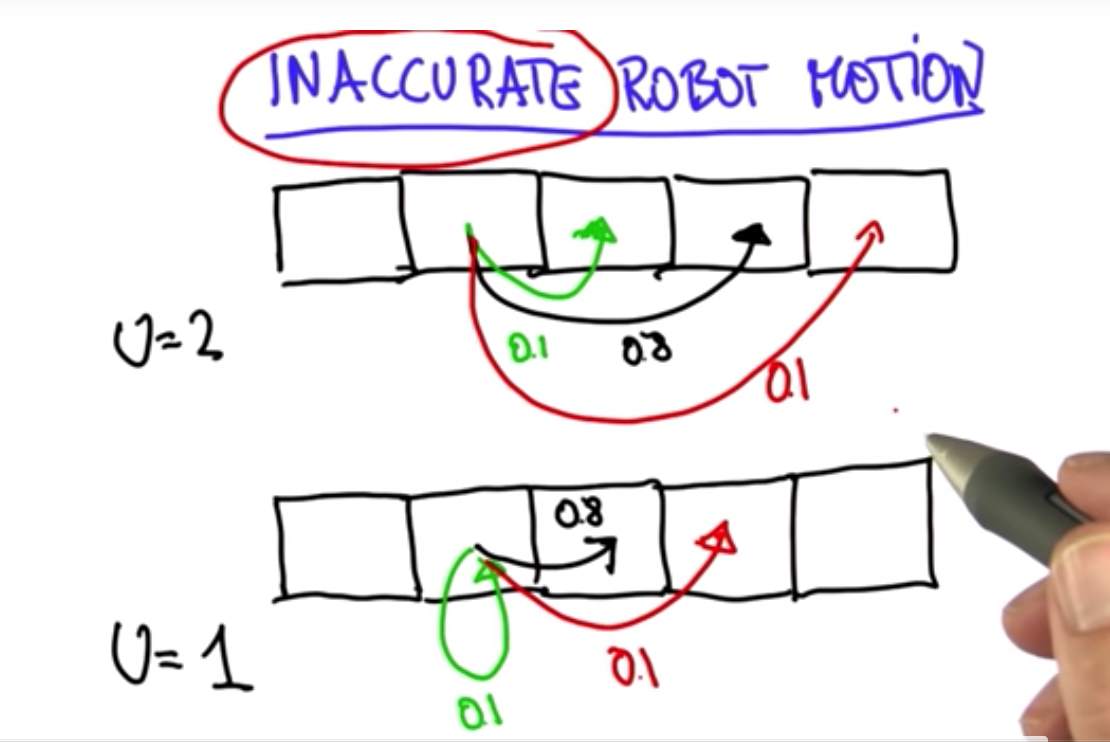 INACCURATE ROBOT MOTION
U=2
0.1 0.8 0.1
0.8
U=1
0.1 0.1